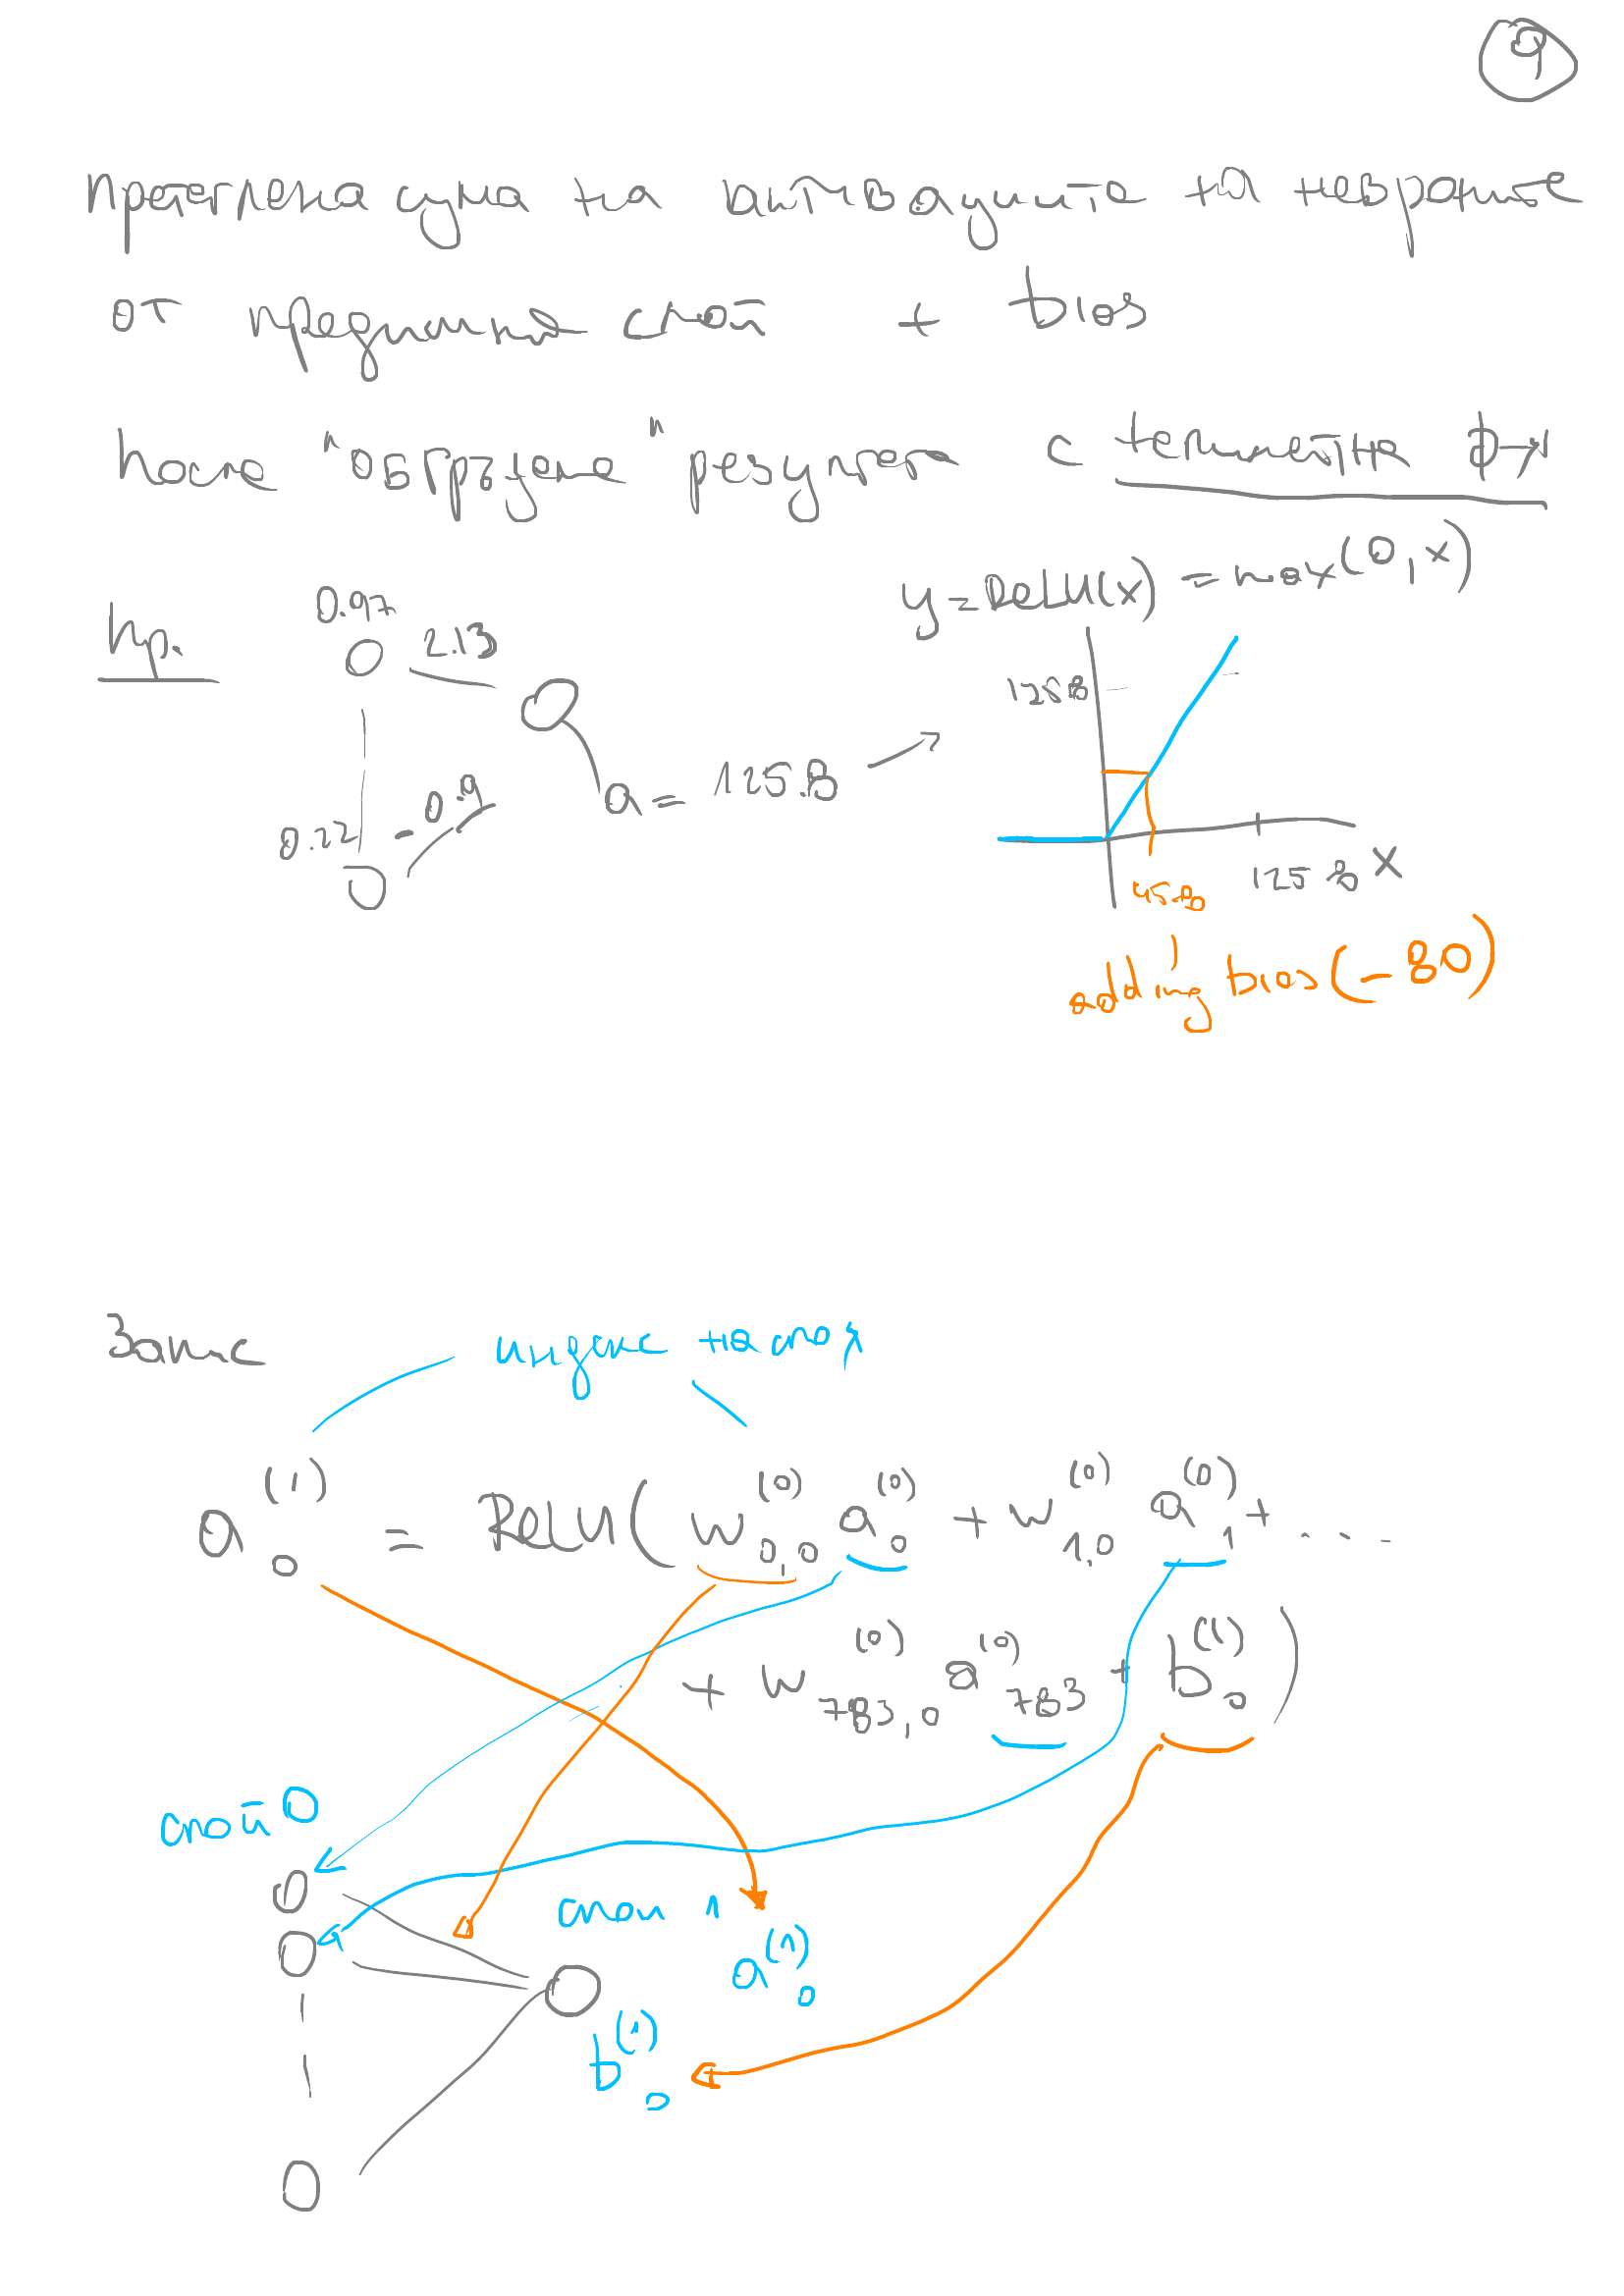 9
Претеглена сума на активациите на невроните
от предишния слой + bias
После "обгръщаме" резултата с нелинейна ф-я
Пр.
0.97
2.13
0.22
-0.9
a = 125.8
y = ReLU(x) = max(0, x)
125.8
45.8
125.8 x
adding bias (-80)
Запис
индекс на слоя
a₀⁽¹⁾ = ReLU(w₀,₀⁽⁰⁾ a₀⁽⁰⁾ + w₁,₀⁽⁰⁾ a₁⁽⁰⁾ + ....
+ w₇₈₃,₀⁽⁰⁾ a₇₈₃⁽⁰⁾ + b₀⁽¹⁾)
слой 0
слой 1
a₀⁽¹⁾
b₀⁽¹⁾